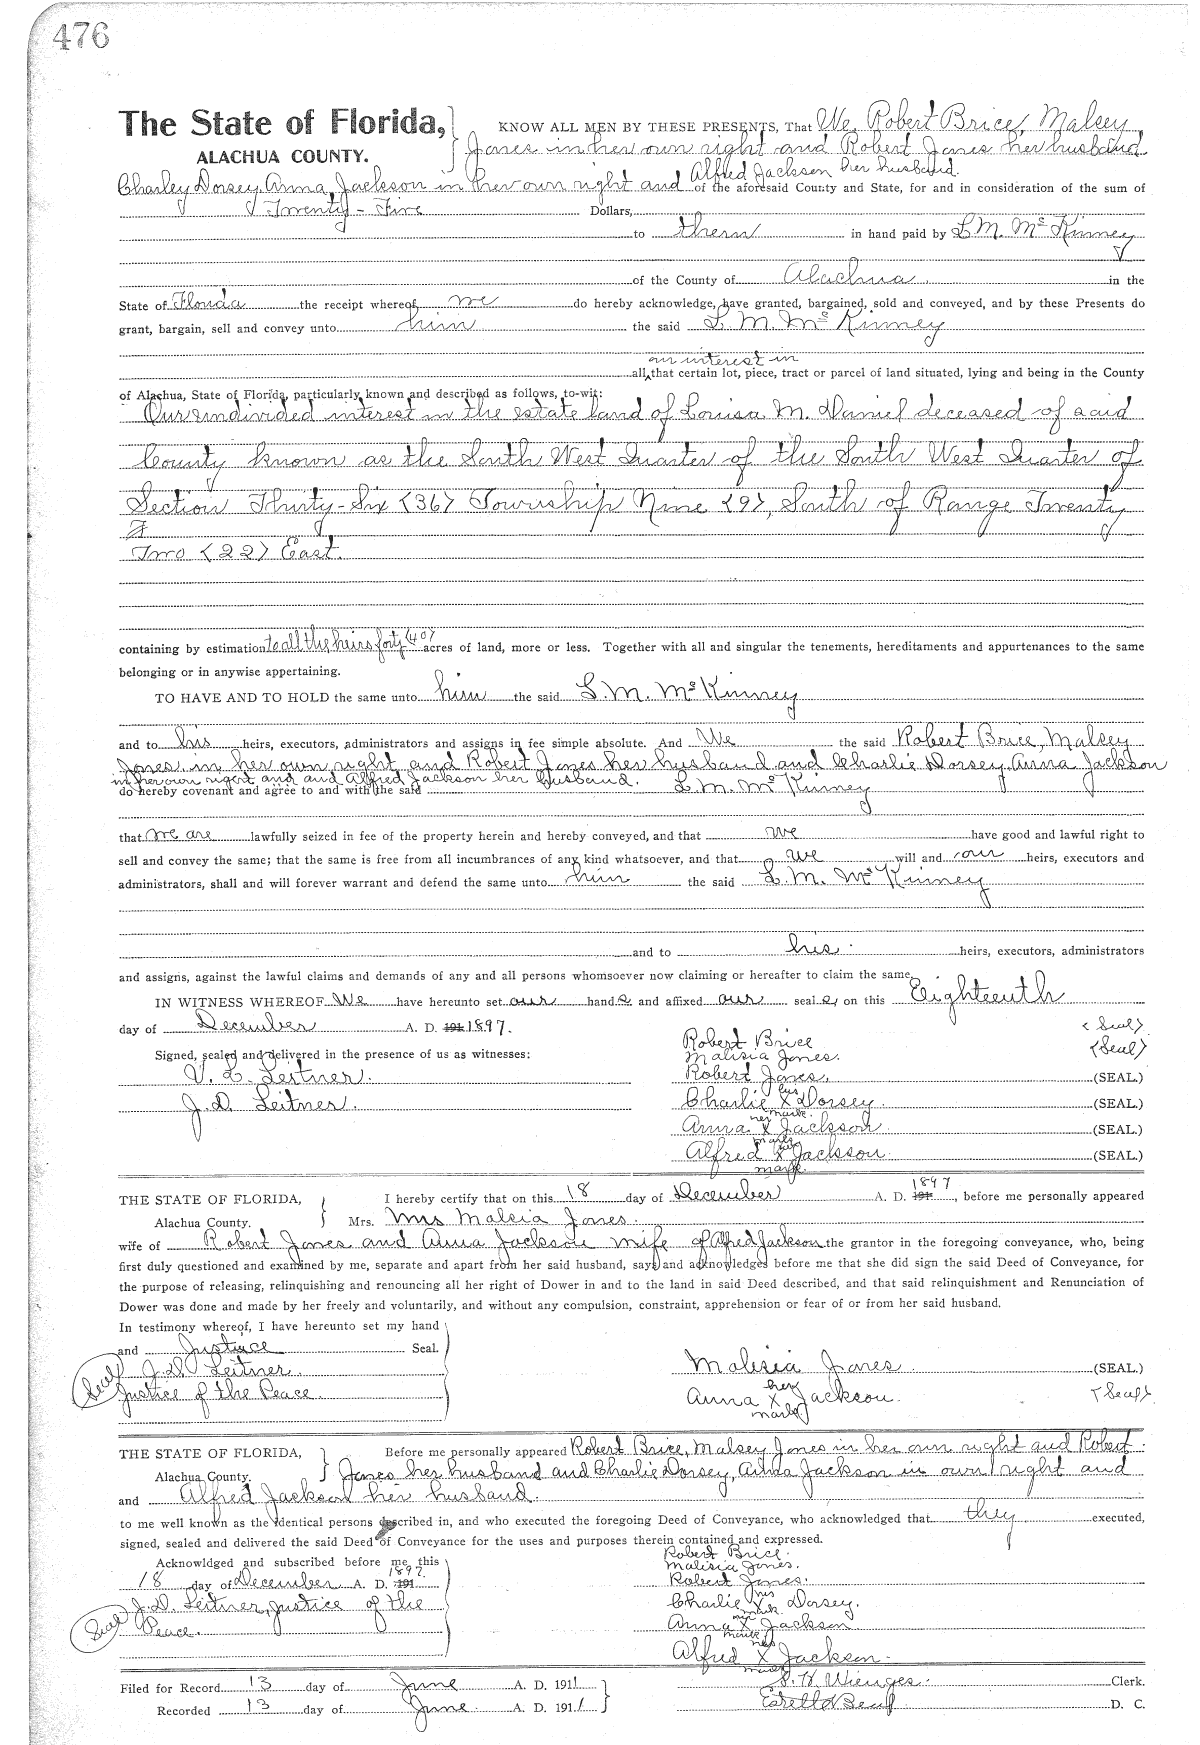 476
The State of Florida,
ALACHUA COUNTY.
KNOW ALL MEN BY THESE PRESENTS, That We, Robert Brice, Malsey
Jones in her own right and Robert Jones her husband
Charley Dorsey, Anna Jackson in her own right and Alfred Jackson her husband. of the aforesaid County and State, for and in consideration of the sum of
Twenty-Five Dollars,
to them in hand paid by L.M. McKinney
of the County of Alachua in the
State of Florida the receipt whereof we do hereby acknowledge, have granted, bargained, sold and conveyed, and by these Presents do
grant, bargain, sell and convey unto him the said L. M. McKinney
an interest in
all that certain lot, piece, tract or parcel of land situated, lying and being in the County
of Alachua, State of Florida, particularly known and described as follows, to-wit:
Our undivided interest in the estate land of Louisa M. Daniel deceased of said
County known as the South West Quarter of the South West Quarter of
Section Thirty-Six <36> Township Nine <9>, South of Range Twenty
Two <22> East.
containing by estimation to all the heirs forty <40> acres of land, more or less. Together with all and singular the tenements, hereditaments and appurtenances to the same
belonging or in anywise appertaining.
TO HAVE AND TO HOLD the same unto him the said L.M. McKinney
and to his heirs, executors, administrators and assigns in fee simple absolute. And We the said Robert Brice, Malsey
Jones in her own right and Robert Jones her husband and Charlie Dorsey, Anna Jackson
in her own right and and Alfred Jackson her husband.
do hereby covenant and agree to and with the said L.M. McKinney
that we are lawfully seized in fee of the property herein and hereby conveyed, and that we have good and lawful right to
sell and convey the same; that the same is free from all incumbrances of any kind whatsoever, and that we will and our heirs, executors and
administrators, shall and will forever warrant and defend the same unto him the said L.M. McKinney
and to his heirs, executors, administrators
and assigns, against the lawful claims and demands of any and all persons whomsoever now claiming or hereafter to claim the same.
IN WITNESS WHEREOF We have hereunto set our hand s and affixed our seal s, on this Eighteenth
day of December A. D. 191 1897.
Signed, sealed and delivered in the presence of us as witnesses:
V. L. Leitner.
J.D. Leitner.
Robert Brice <Seal>
Malisia Jones. <Seal>
Robert Jones. (SEAL.)
Charlie his X mark Dorsey. (SEAL.)
Anna her X mark Jackson (SEAL.)
Alfred his X mark Jackson (SEAL.)
THE STATE OF FLORIDA,
Alachua County.
I hereby certify that on this 18 day of December A. D. 191 1897, before me personally appeared
Mrs. Mrs Malsia Jones.
wife of Robert Jones and Anna Jackson wife of Alfred Jackson the grantor in the foregoing conveyance, who, being
first duly questioned and examined by me, separate and apart from her said husband, says and acknowledges before me that she did sign the said Deed of Conveyance, for
the purpose of releasing, relinquishing and renouncing all her right of Dower in and to the land in said Deed described, and that said relinquishment and Renunciation of
Dower was done and made by her freely and voluntarily, and without any compulsion, constraint, apprehension or fear of or from her said husband.
In testimony whereof, I have hereunto set my hand
and Justice Seal.
Seal J.D. Leitner.
Justice of the Peace.
Malisia Jones (SEAL.)
Anna her X mark Jackson. <Seal>
THE STATE OF FLORIDA,
Alachua County.
Before me personally appeared Robert Brice, Malsey Jones in her own right and Robert
Jones her husband and Charlie Dorsey, Anna Jackson in own right and
and Alfred Jackson her husband.
to me well known as the identical persons described in, and who executed the foregoing Deed of Conveyance, who acknowledged that they executed,
signed, sealed and delivered the said Deed of Conveyance for the uses and purposes therein contained and expressed.
Acknowldged and subscribed before me this
18 day of December A. D. 191 1897
Seal J.D. Leitner, Justice of the
Peace.
Robert Brice.
Malisia Jones.
Robert Jones.
Charlie his X mark Dorsey.
Anna her X mark Jackson
Alfred his X mark Jackson.
Filed for Record 13 day of June A. D. 1911
Recorded 13 day of June A. D. 1911
S. H. Wienges. Clerk.
D. C.